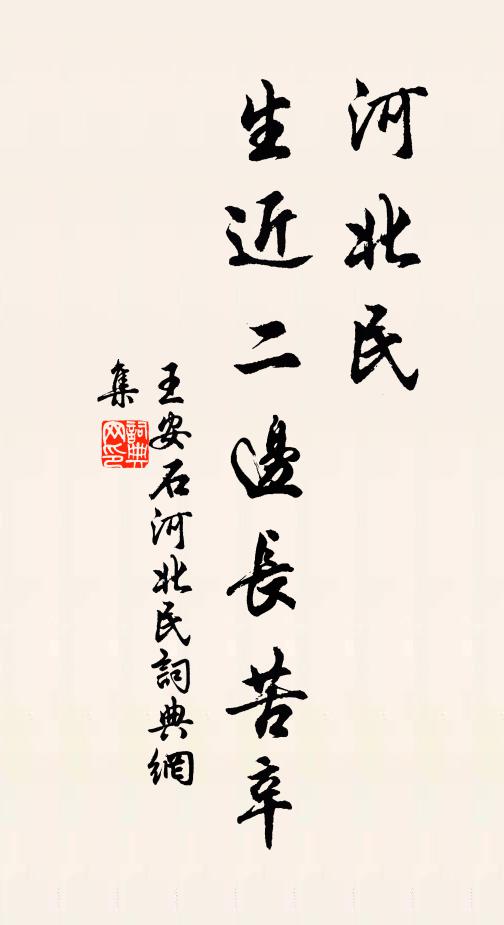 河北民
生近二邊長苦辛
王安石河北民詞典網
集
詞典网印